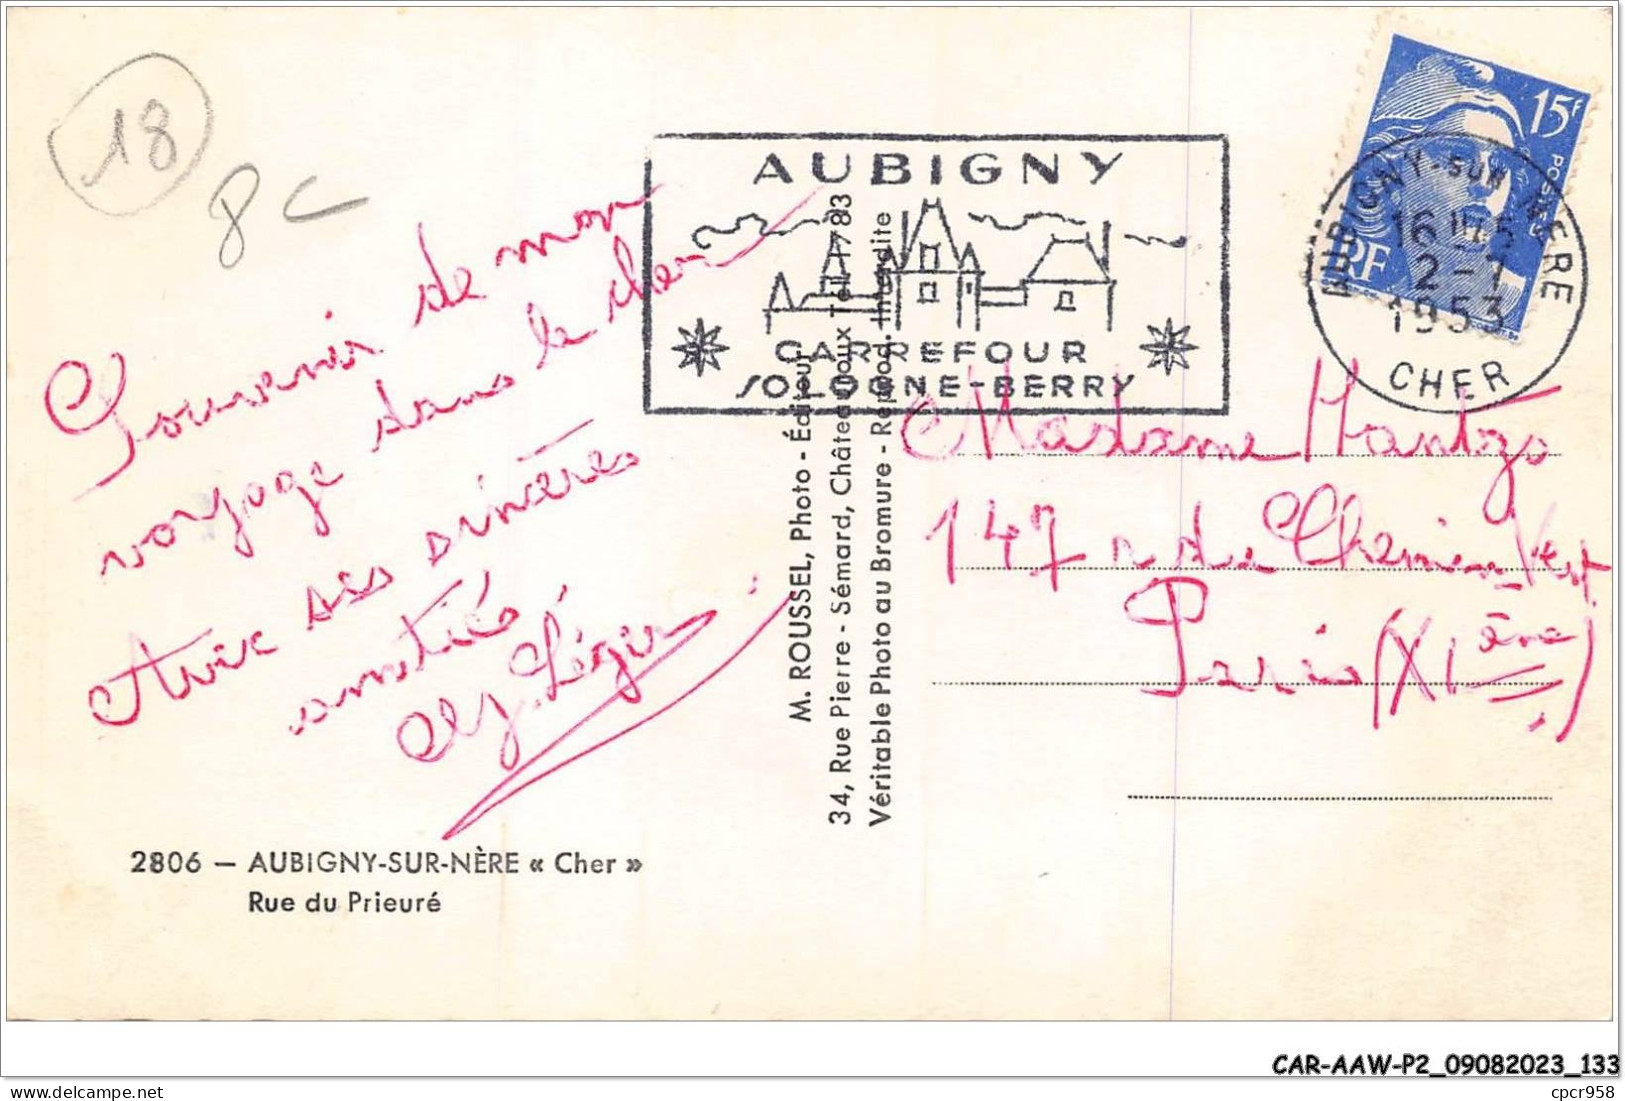 18
AUBIGNY
CARREFOUR
SOLOGNE-BERRY
15F
POSTES
RF
AUBIGNY-SUR-NERE
16H45
2-7
1953
CHER
Souvenir de mon
voyage dans le cher
Avec ses sincères
amitiés
Léger
M. ROUSSEL, Photo - Éditeur
34, Rue Pierre - Sémard, Châteauroux Tél. 17-83
Véritable Photo au Bromure - Reprod. Interdite
Madame
147 r du Chemin Vert
Paris (XIème)
2806 — AUBIGNY-SUR-NÈRE « Cher »
Rue du Prieuré
CAR-AAW-P2_09082023_133
www.delcampe.net
cpcr958